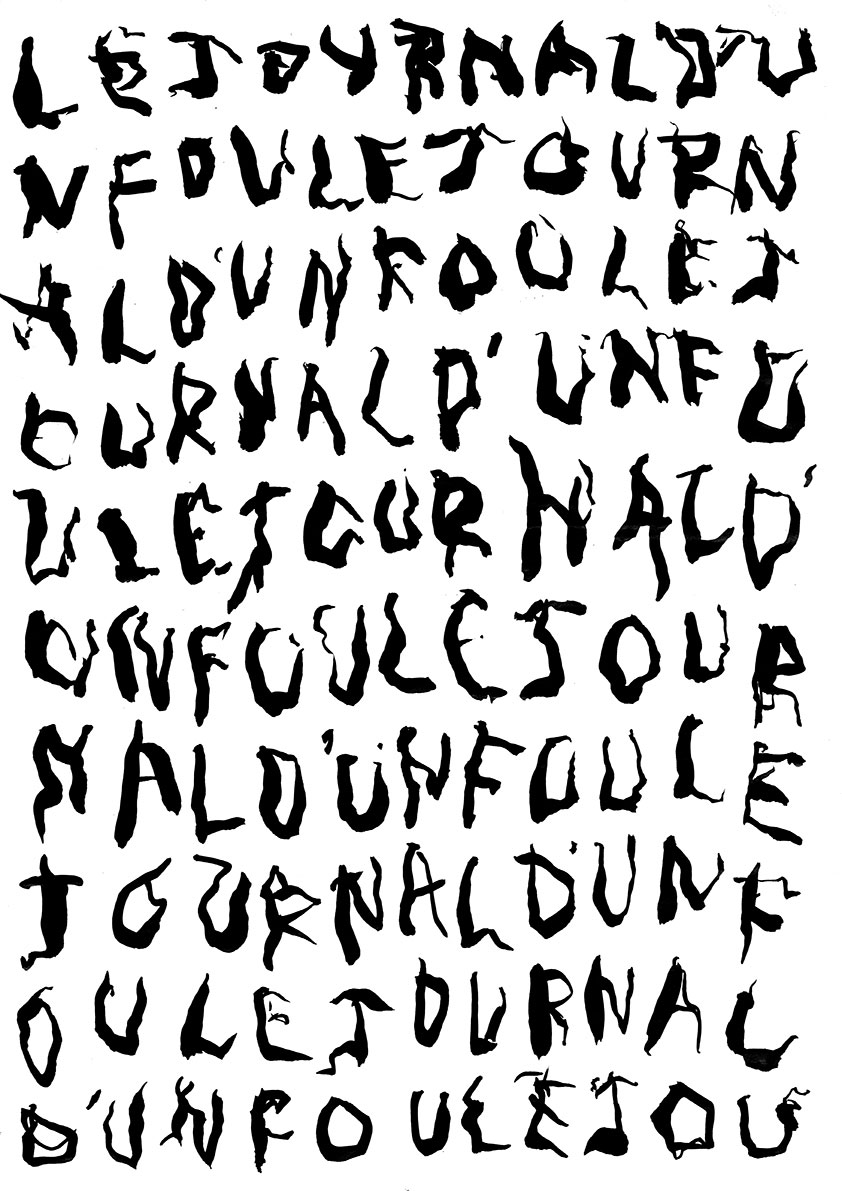 LEJOURNALD'U
NFOULEJOURN
ALD'UNFOULEJ
OURNALD'UNFO
ULEJOURNALD'
UNFOULEJOUR
NALD'UNFOULE
JOURNALD'UNF
OULEJOURNAL
D'UNFOULEJOU